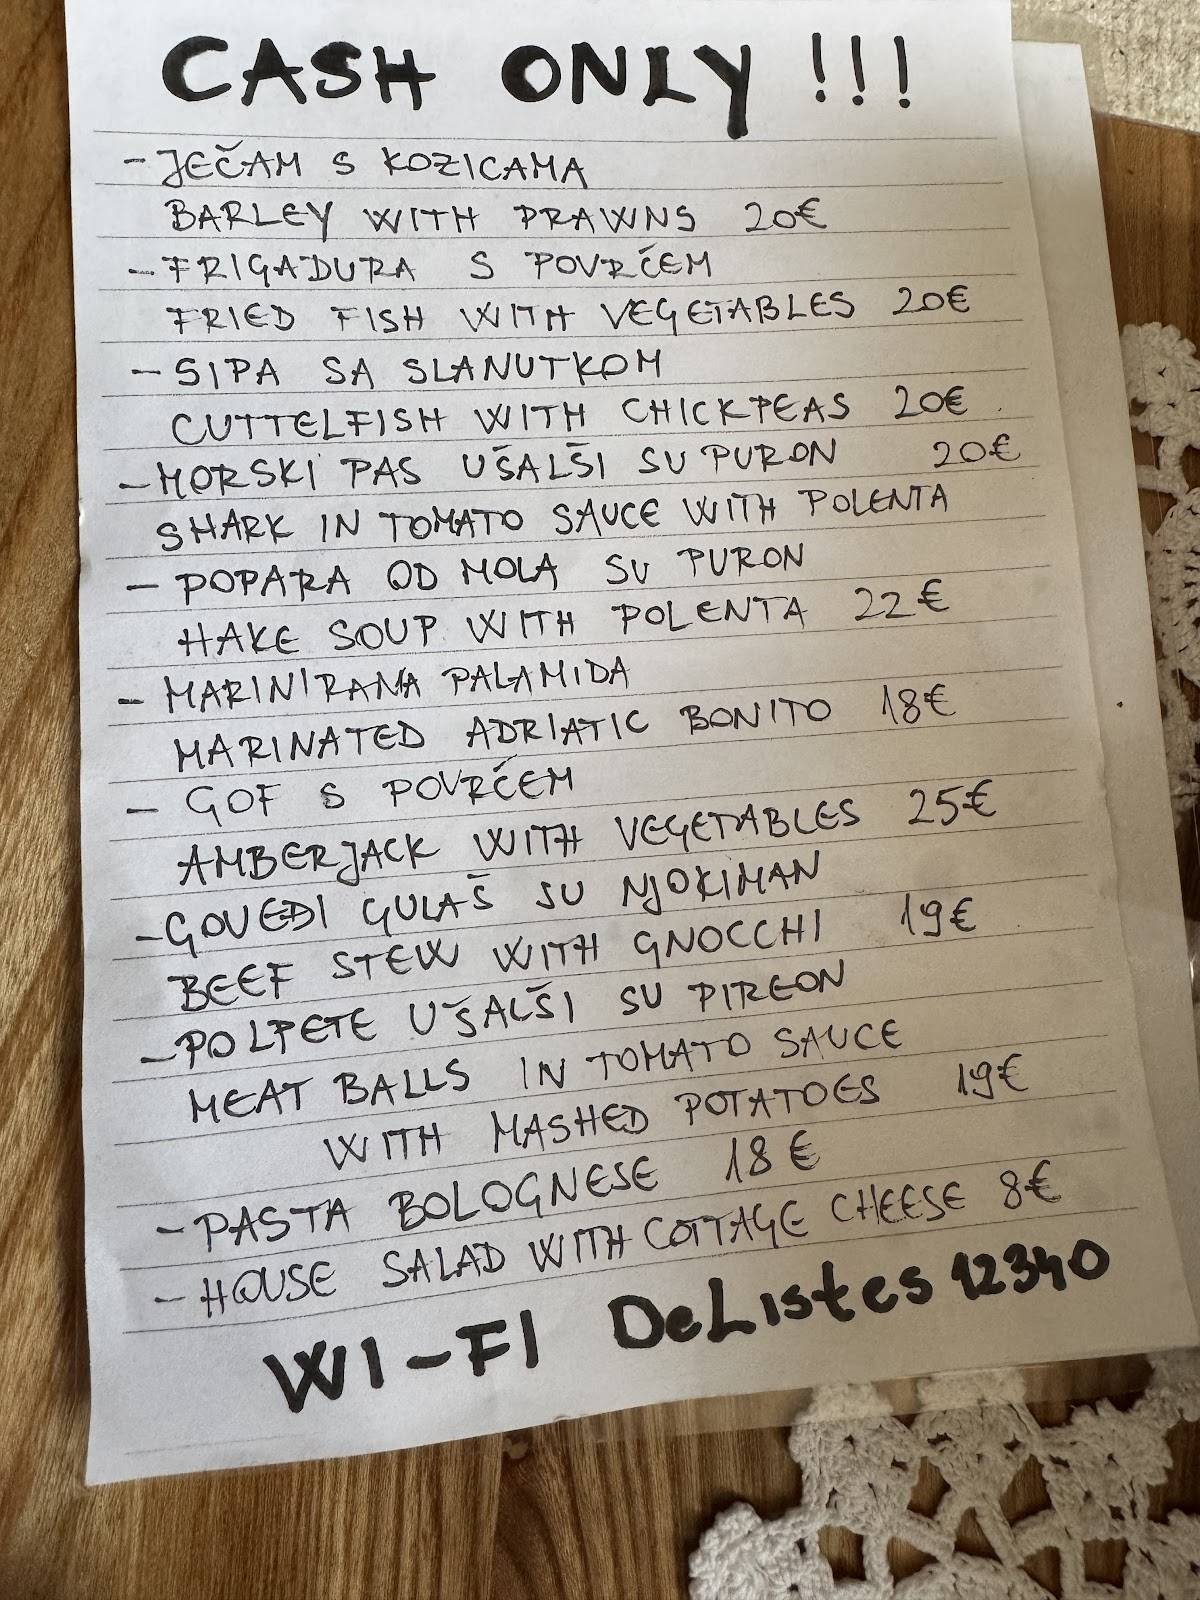 CASH ONLY !!!
- JEČAM S KOZICAMA
BARLEY WITH PRAWNS 20€
- FRIGADURA S POVRĆEM
FRIED FISH WITH VEGETABLES 20€
- SIPA SA SLANUTKOM
CUTTELFISH WITH CHICKPEAS 20€
- MORSKI PAS UŠALŠI SU PURON 20€
SHARK IN TOMATO SAUCE WITH POLENTA
- POPARA OD MOLA SU PURON
HAKE SOUP WITH POLENTA 22€
- MARINIRANA PALAMIDA
MARINATED ADRIATIC BONITO 18€
- GOF S POVRĆEM
AMBERJACK WITH VEGETABLES 25€
- GOVEDI GULAŠ SU NJOKIMAN
BEEF STEW WITH GNOCCHI 19€
- POLPETE UŠALŠI SU PIREON
MEAT BALLS IN TOMATO SAUCE
WITH MASHED POTATOES 19€
- PASTA BOLOGNESE 18€
- HOUSE SALAD WITH COTTAGE CHEESE 8€
WI-FI DeListes12340